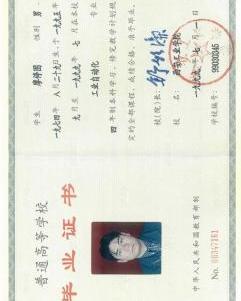 普通高等学校
毕业证书
中华人民共和国教育部制
No 00347161
学生 性别 男,
一九七四年 八月二十九日生,于一九九五年
九月至一九九九年七月在本校
工业自动化 专业
四年制本科学习,修完教学计划规
定的全部课程,成绩合格,准予毕业。
校(院)长:
校名: 工业学院
一九九九年七月一日
学校编号: 99030245